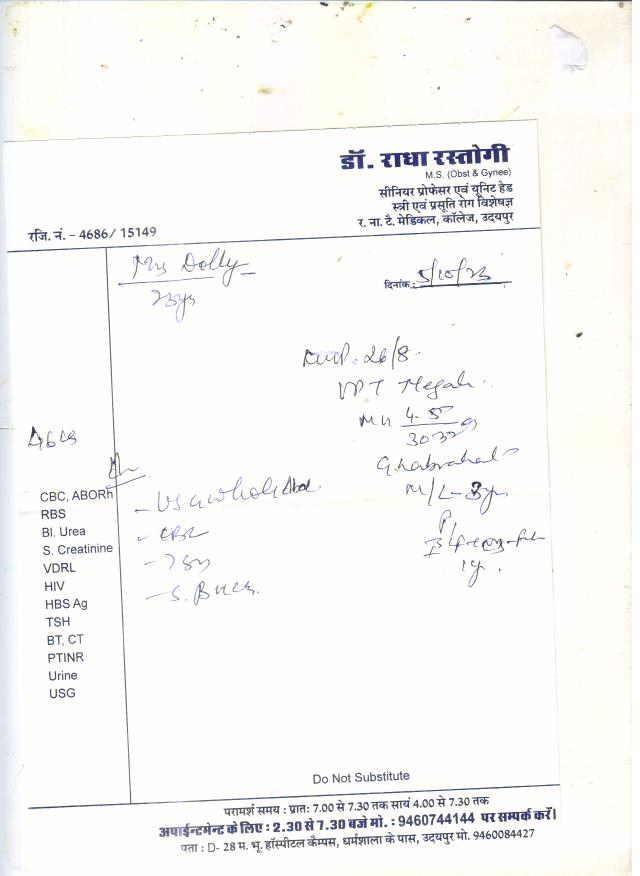 डॉ. राधा रस्तोगी
M.S. (Obst & Gynee)
सीनियर प्रोफेसर एवं यूनिट हेड
स्त्री एवं प्रसूति रोग विशेषज्ञ
र. ना. टै. मेडिकल, कॉलेज, उदयपुर
रजि. नं. - 4686/ 15149
Mrs Dolly
23ys
दिनांक : 5/10/23
LMP. 26/8
UPT Negati
MH 4-5
Ghabrahat
M/L - 3ys
1y.
CBC, ABORh
RBS
Bl. Urea
S. Creatinine
VDRL
HIV
HBS Ag
TSH
BT, CT
PTINR
Urine
USG
- USG whole Abd
- CBC
Do Not Substitute
परामर्श समय : प्रात: 7.00 से 7.30 तक सायं 4.00 से 7.30 तक
अपाईन्टमेन्ट के लिए : 2.30 से 7.30 बजे मो. : 9460744144 पर सम्पर्क करें।
पता : D- 28 म. भू. हॉस्पीटल कैम्पस, धर्मशाला के पास, उदयपुर मो. 9460084427